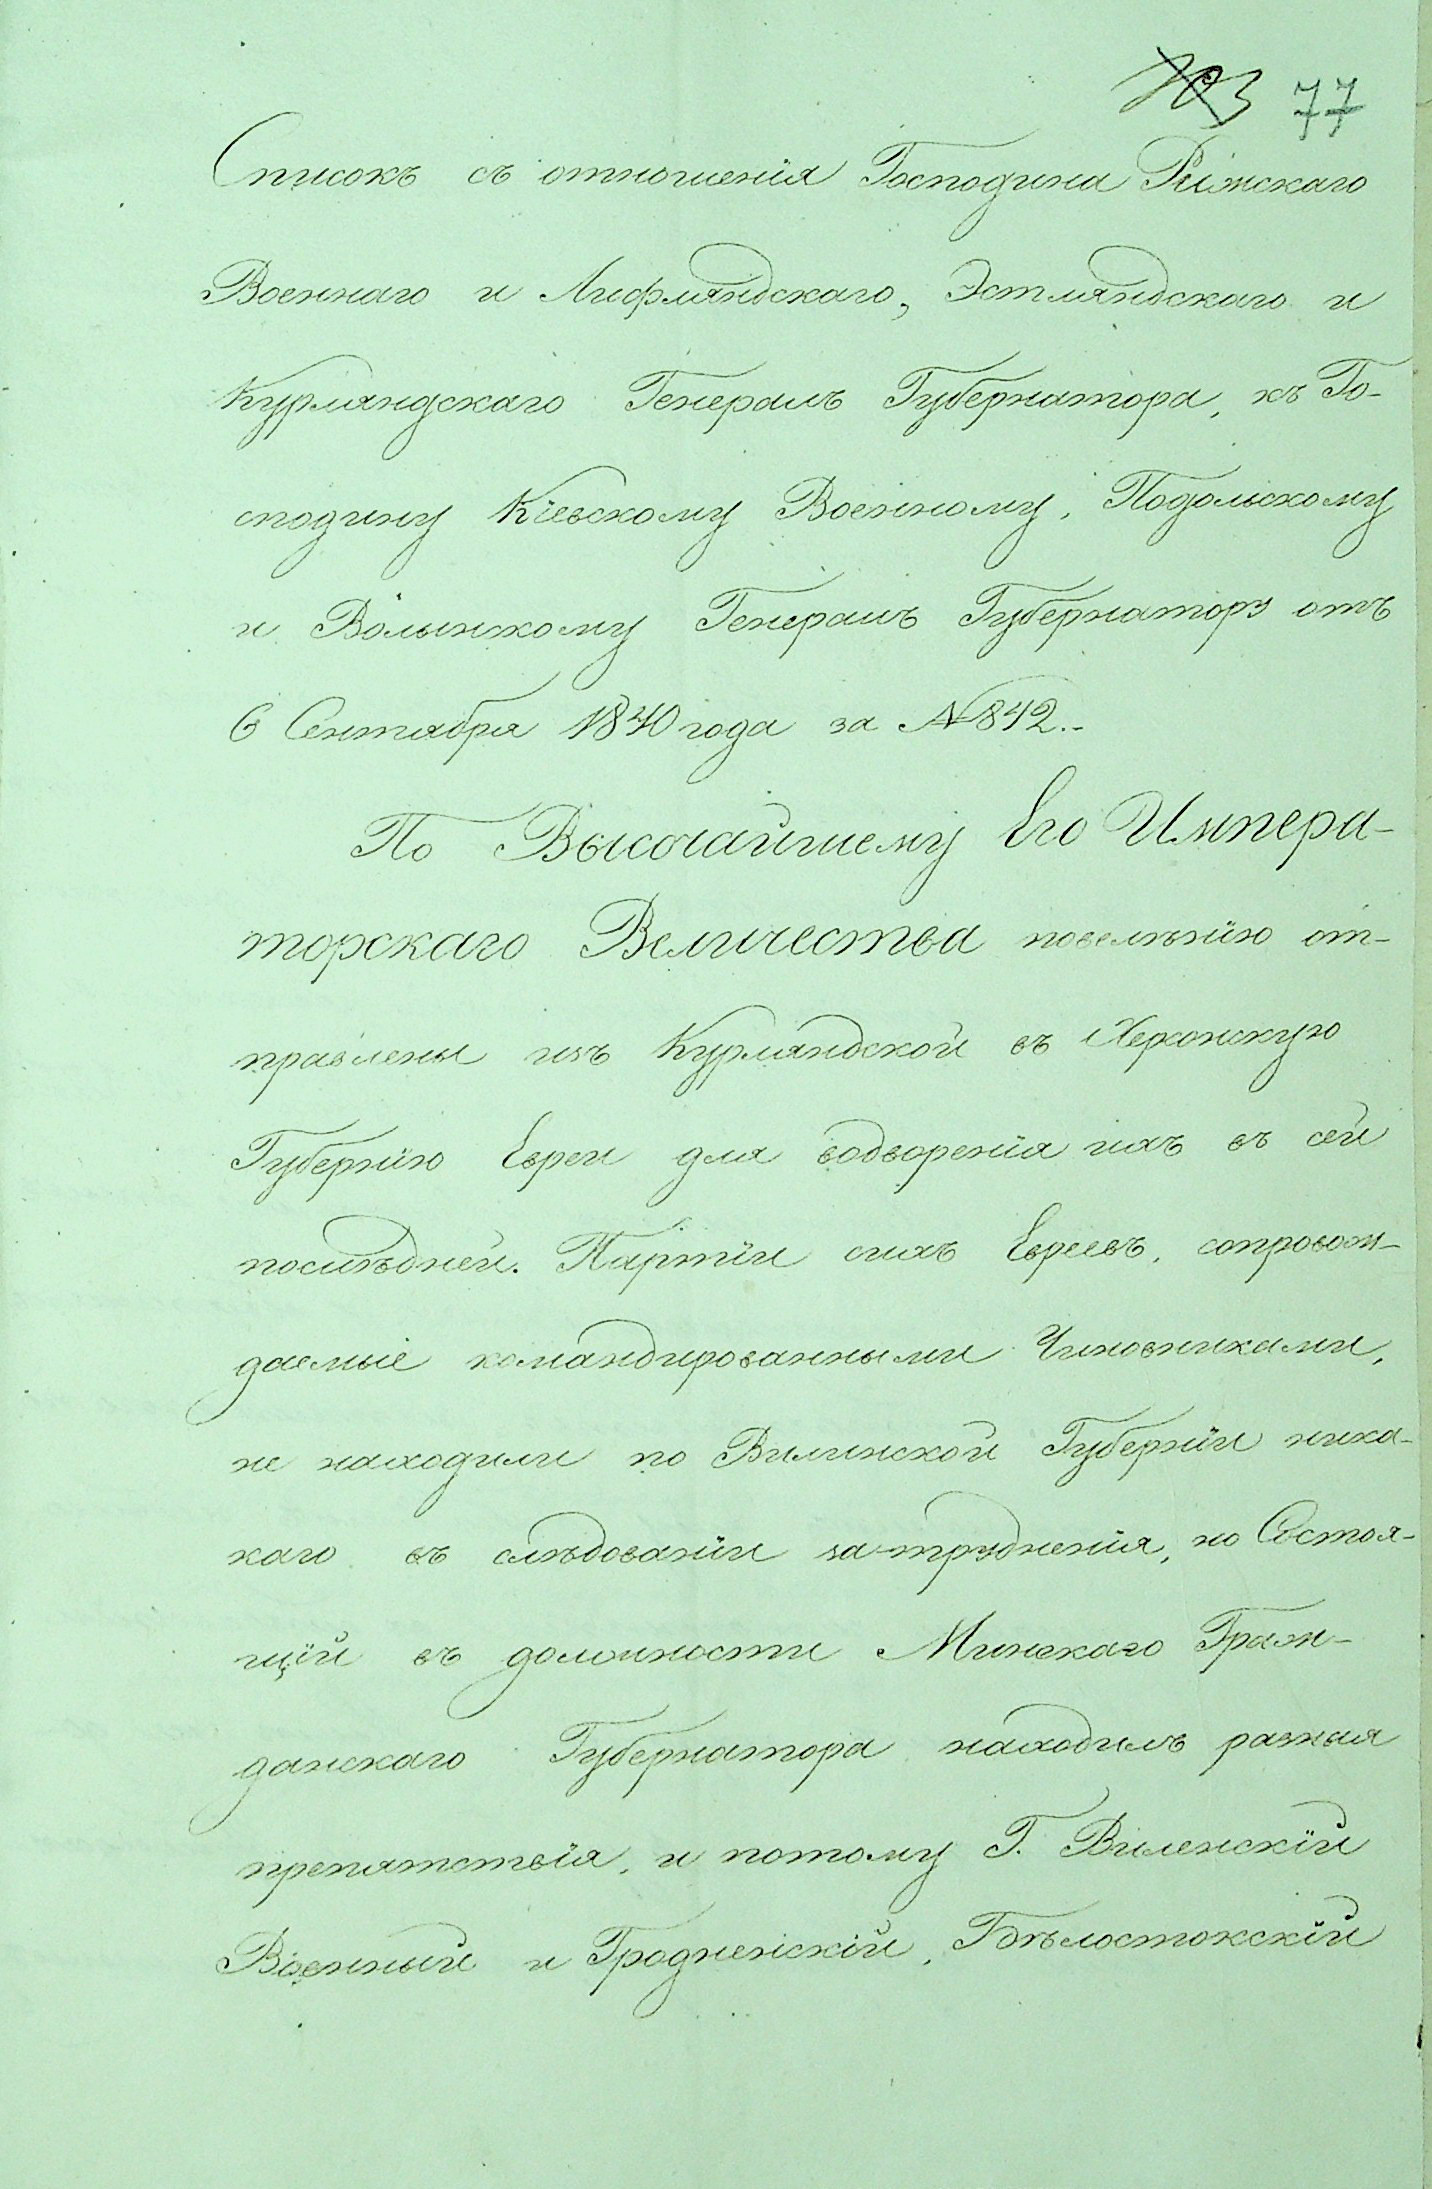 103 77
Списокъ съ отношенія Господина Рижскаго
Военнаго и Лифляндскаго, Эстляндскаго и
Курляндскаго Генералъ Губернатора, къ Го-
сподину Кіевскому Военному, Подольскому
и Волынскому Генералъ Губернатору отъ
6 Сентября 1840 года за № 842.-
По Высочайшему Его Импера-
торскаго Величества повелѣнію от-
правлены изъ Курляндской въ Херсонскую
Губернію Евреи для водворенія ихъ въ сей
послѣдней. Партіи сихъ Евреевъ, сопровож-
даемые командированными Чиновниками,
не находили по Вилинской Губерніи ника-
каго въ слѣдованіи затрудненія, но Состоя-
щій въ должности Минскаго Граж-
данскаго Губернатора находилъ разная
препятствія, и потому Г. Виленскій
Военный и Гродненскій, Бѣлостокскій